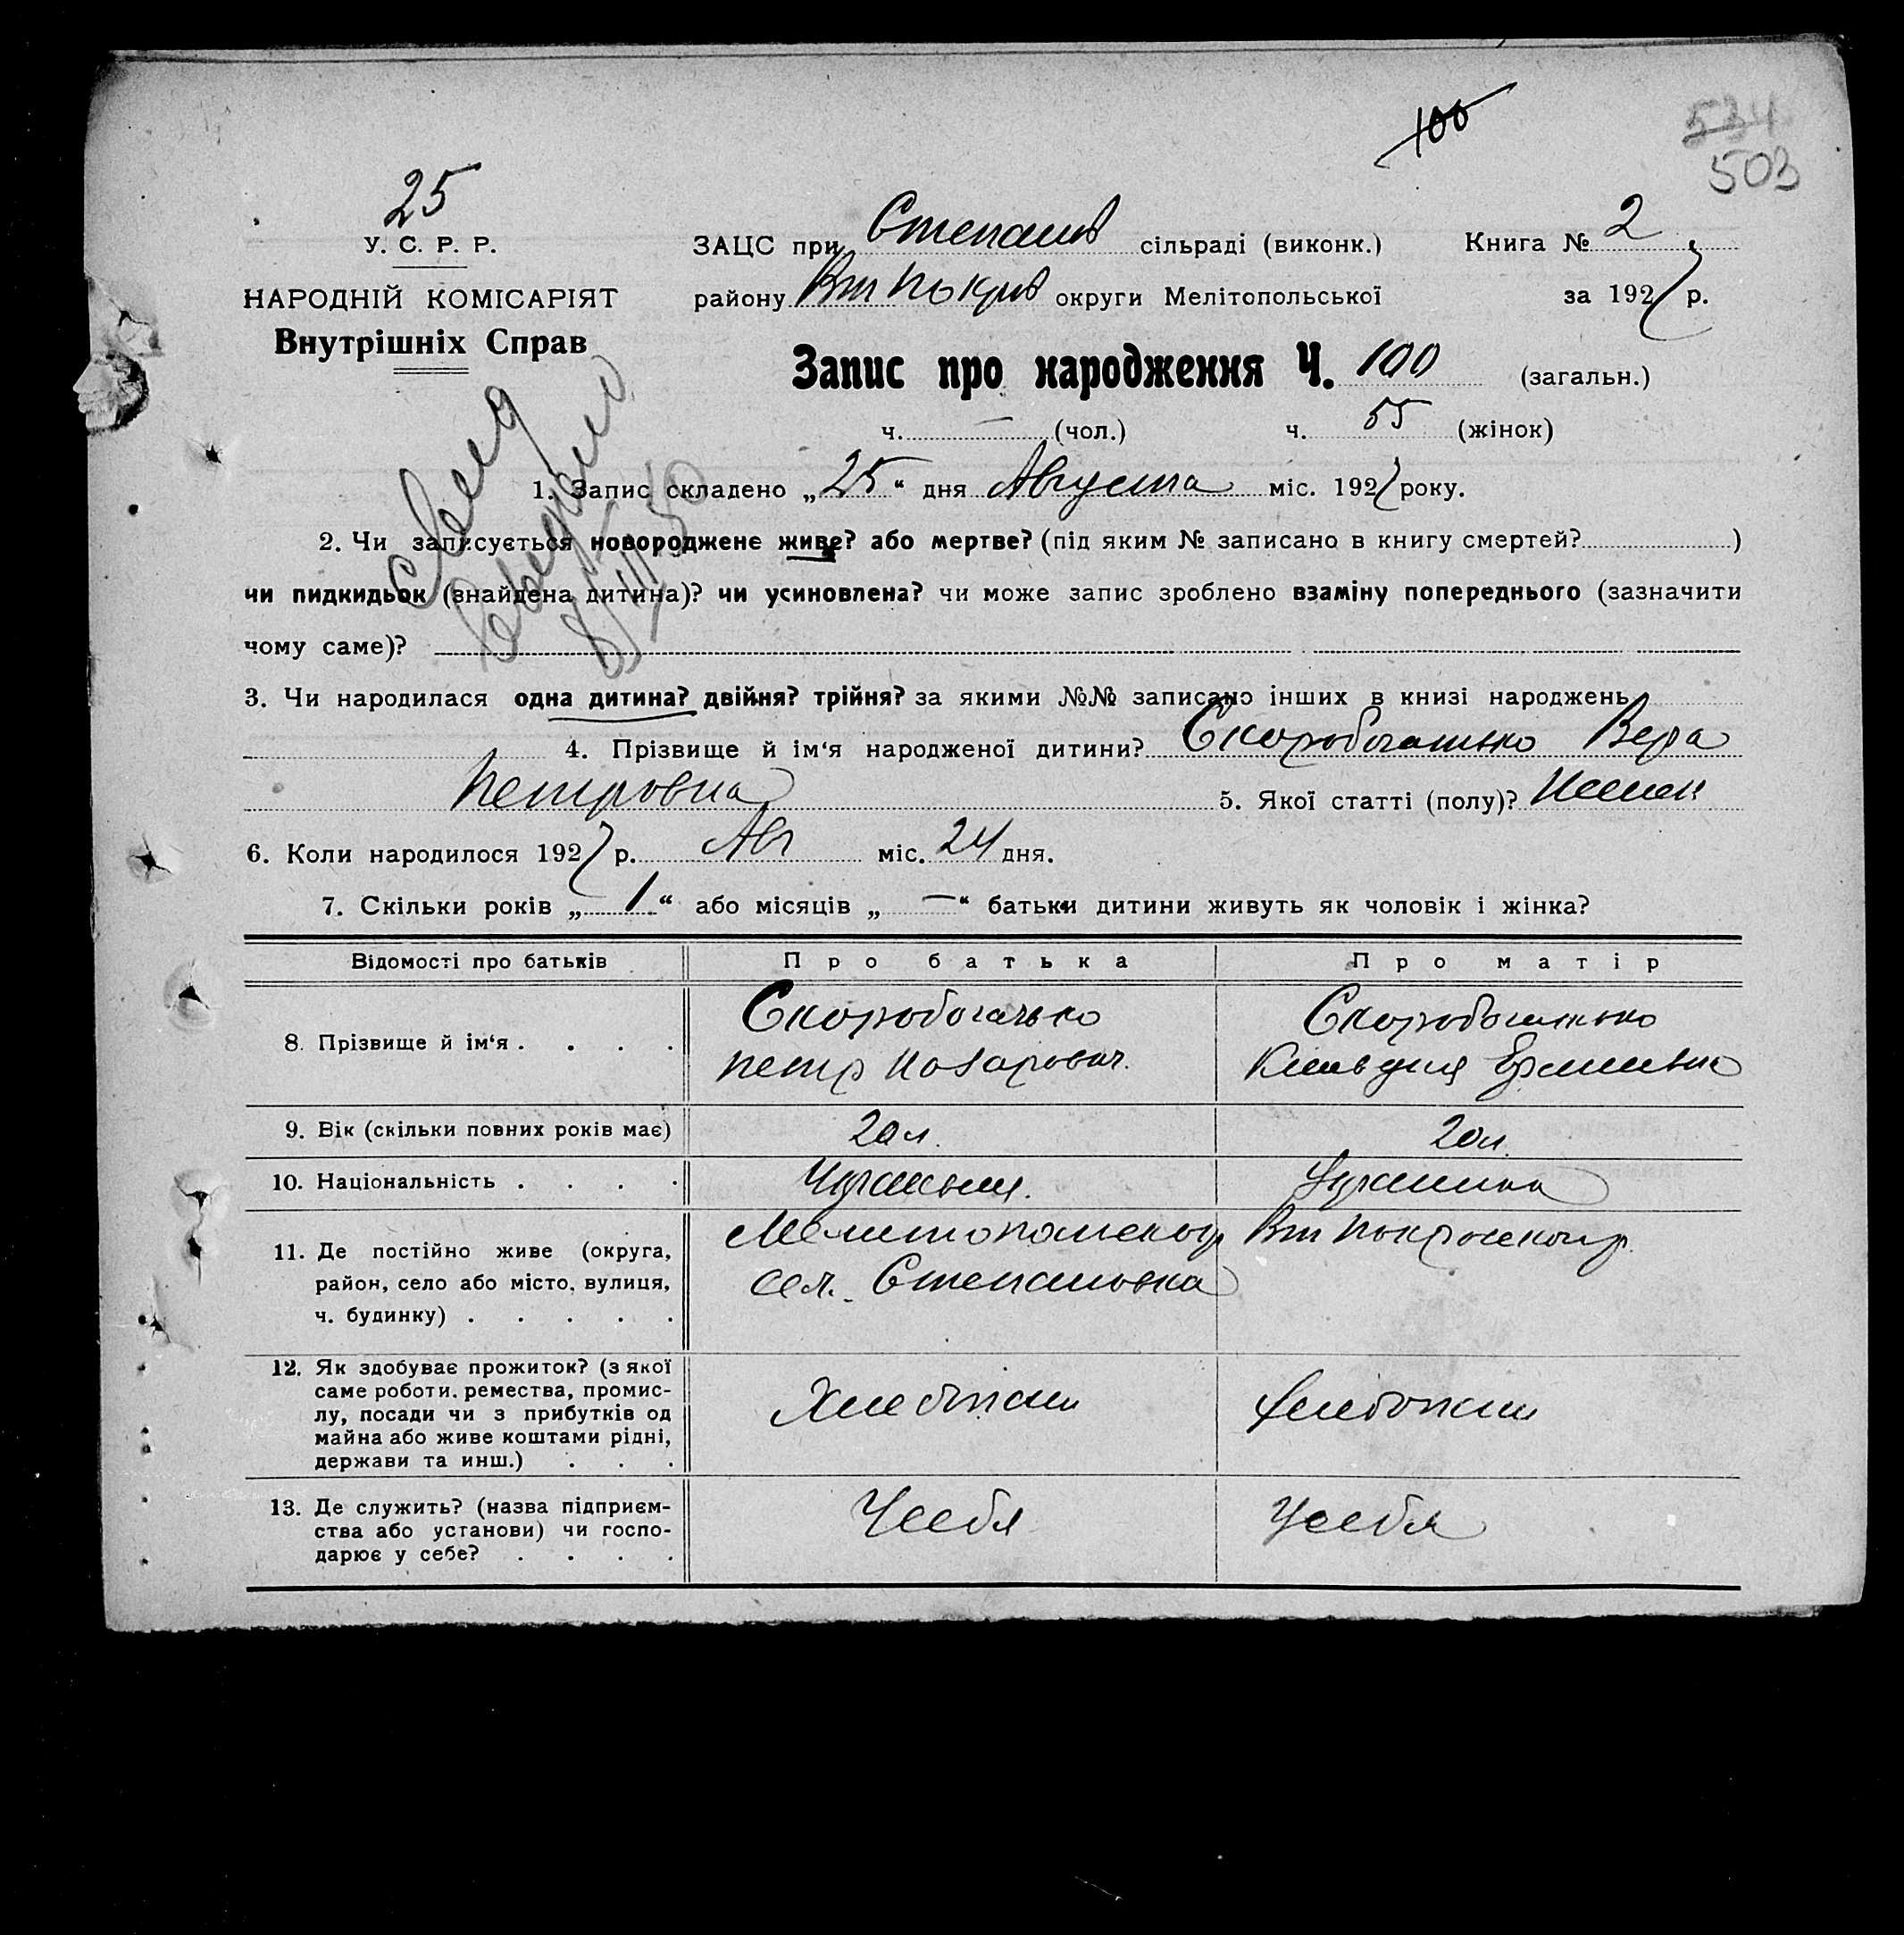 100
534
503
25
У. С. Р. Р.
НАРОДНІЙ КОМІСАРІЯТ
Внутрішніх Справ
ЗАЦС при Степанів сільраді (виконк.) Книга № 2
району Вт Покрів округи Мелітопольської за 1927 р.
Запис про народження Ч. 100 (загальн.)
ч. — (чол.) ч. 55 (жінок)
1. Запис складено „25“ дня Августа міс. 1927 року.
2. Чи записується новороджене живе? або мертве? (під яким № записано в книгу смертей? )
чи пидкидьок (знайдена дитина)? чи усиновлена? чи може запис зроблено взаміну попереднього (зазначити
чому саме)?
3. Чи народилася одна дитина? двійня? трійня? за якими №№ записано інших в книзі народжень
4. Прізвище й ім‘я народженої дитини? Скоробогатько Вера
Петровна 5. Якої статті (полу)?
6. Коли народилося 1927 р. Авг міс. 24 дня.
7. Скільки років „ 1 “ або місяців „ — “ батьки дитини живуть як чоловік і жінка?
Відомості про батьків Про батька Про матір
8. Прізвище й ім‘я . . . . Скоробогатько Скоробогатько
Петр Назарович
9. Вік (скільки повних років має) 20 л. 20 л.
10. Національність . . . .
11. Де постійно живе (округа, Мелитопольскогр Вт Покровскогр.
район, село або місто, вулиця, сел. Степановка
ч. будинку) . . . . .
12. Як здобуває прожиток? (з якої
саме роботи. ремества, промис- Хлебопаш хлебопаш
лу, посади чи з прибутків од
майна або живе коштами рідні,
держави та инш.) . . .
13. Де служить? (назва підприєм- У себя У себя
ства або установи) чи госпо-
дарює у себе? . . . .